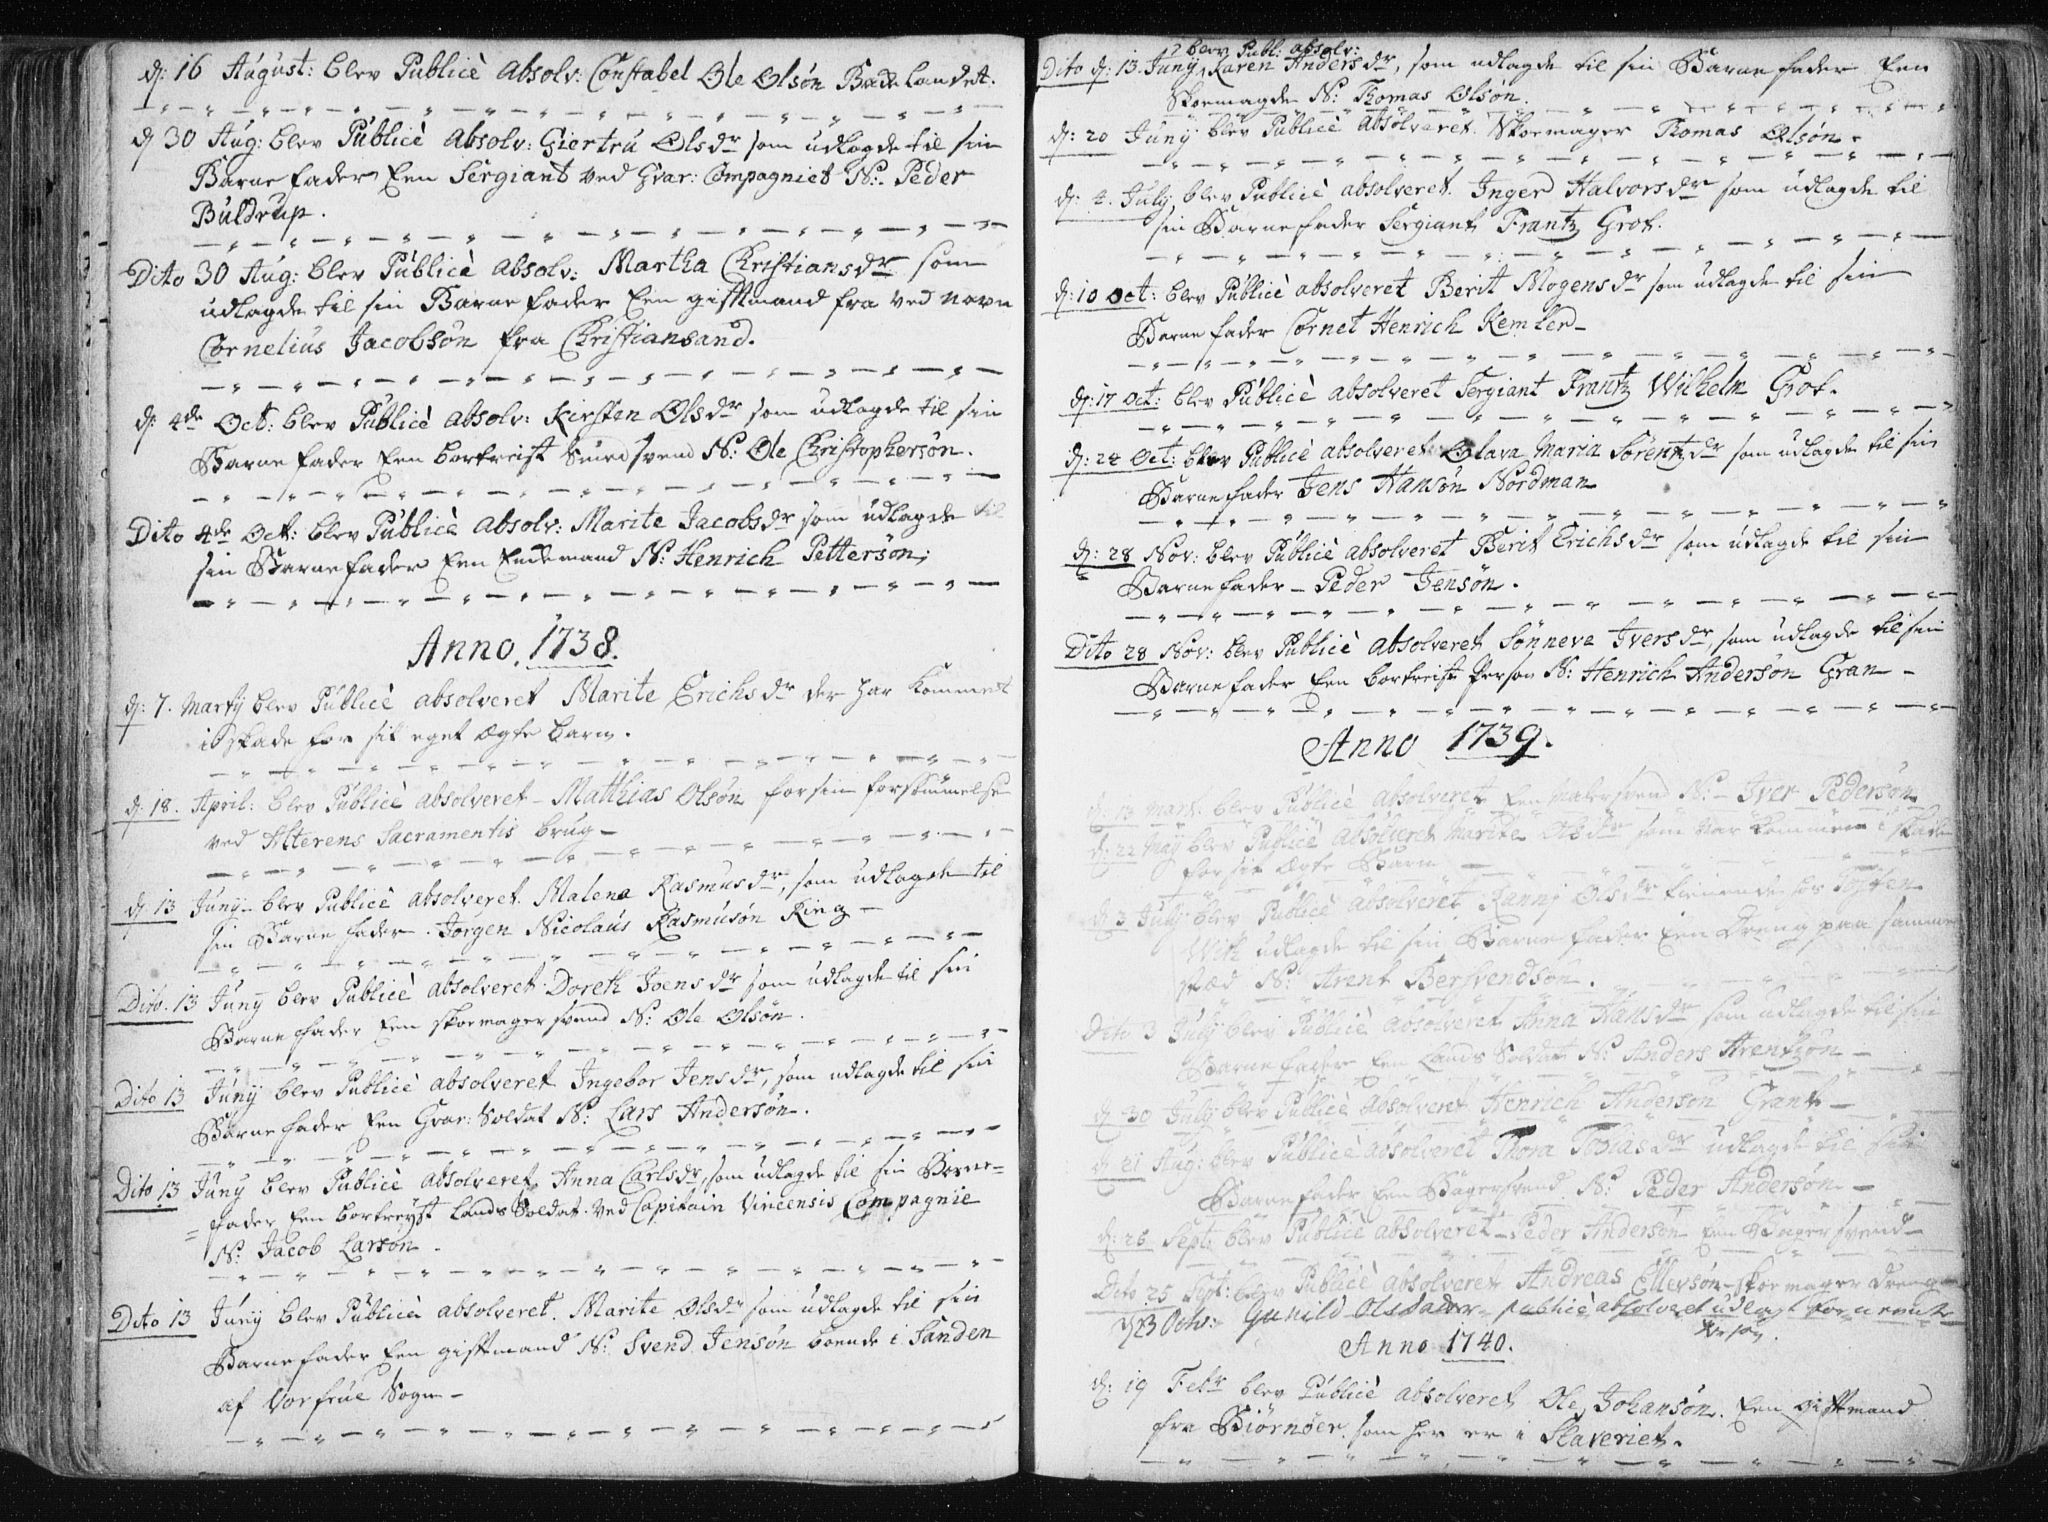 d: 16 August: blev Publicè Absolv: Constabel Ole Olsøn Badelandet.
d 30 Aug: blev Publicè Absolv: Giertru Olsdr som udlagde til sin
Barne fader Een Sergiant ved Gvar: Compagniet N: Peder
Buldrup.
Dito 30 Aug: blev Publicè Absolv: Martha Christiansdr som
udlagde til sin Barne fader Een giftmand fra ved navn
Cornelius Jacobsøn fra Christiansand.
d: 4de Oct: blev Publicè Absolv: Kirsten Olsdr som udlagde til sin
Barne fader Een bortreist Smedsvend N: Ole Christophersøn.
Dito 4de Oct: blev Publicè Absolv: Marite Jacobsdr som udlagde til
sin Barne fader Een Enckemand N: Henrich Pettersøn;
Anno, 1738.
d: 7. Martij blev Publicè absolveret Marite Erichsdr der har kommet
i skade for sit eget ægte barn.
d: 18. April: blev Publicè absolveret Matthias Olsøn for sin forsømmelse
ved Alterens Sacramentis brug
d 13 Junij blev Publicè absolveret. Malena Rasmusdr, som udlagde til
sin Barne fader. Jørgen Nicolaus Rasmusøn Ring
Dito. 13 Junij blev Publicè absolveret Doreth Joensdr som udlagde til sin
Barne fader Een skoemagersvend N: Ole Olsøn.
Dito 13 Junij blev Publicè absolveret Ingebor Jensdr, som udlagde til sin
Barne fader Een Gvar: Soldat N: Lars Andersøn.
Dito 13 Junij blev Publicè Absolveret Anna Carlsdr, som udlagde til sin Barne=
=fader Een bortreyst Lands Soldat ved Capitain Vincensis Compagnie
N: Jacob Larsøn.
Dito 13 Junij blev Publicè absolveret. Marite Olsdr som udlagde til sin
Barne fader Een giftmand N: Svend Jensøn boende i Sanden
af Vorfrue Sogn
blev Publ: absolv:
Dito d: 13. Junij Karen Andersdr, som udlagde til sin Barne fader Een
Skoemager N: Thomas Olsøn.
d: 20 Junij blev Publicè Absolveret. Skoemager Thomas Olsøn.
d: 4. July blev Publicè absolveret. Inger Halvorsdr som udlagde til
sin Barne fader Sergiant Frantz Grot.
d: 10 Oct: blev Publicè absolveret Berit Mogensdr som udlagde til sin
Barne fader Cornet Henrich Kemler
d: 17 Oct: blev Publicè absolveret Sergiant Frantz Wilhelm Grot.
d: 24 Oct: blev Publicè absolveret Olava Maria Sørentzdr som udlagde til sin
Barne fader Jens Hansøn Nordman
d: 28 Nov: blev Publicè absolveret Berit Erichsdr som udlagde til sin
Barne fader Peder Jensøn.
Dito 28 Nov: blev Publicè absolveret Sønneva Iversdr, som udlagde til sin
Barne fader Een bortreist Person N: Henrich Andersøn Gran
Anno 1739.
d: 13 Mart: blev Publicè Absolveret Een N: Iver Pedersøn
d: 22 Maij blev Publicè Absolveret Marite Olsdr som har kommen i skade
for sit ægte Barn
d: 3 July blev Publicè absolveret Ranni Olsdr tienende hos
With udlagde til sin Barne fader Een Dreng paa samme
stæd N: Arent Bersvendsøn.
Dito 3 July blev Publicè absolveret Anna Hansdr som udlagde til sin
Barne fader Een Lands Soldat N: Anders Arentzøn
d 30 July blev Publicè absolveret Henrich Andersøn Grant
d 21 Aug: blev Publicè absolveret Thora Tobiasdr udlagde til sin
Barne fader Een Bagersvend N: Peder Andersøn
d: 26 Sept: blev Publicè absolveret Peder Andersøn Een Bagersvend
Dito 25 Sept: blev Publicè absolveret Andreas Ellevsøn skoemager dreng
d 23 Octv: Gunild Olsdader publicè absolveret udlagt
Anno 1740.
d: 19 Febr blev Publicè absolveret Ole Johansøn. Een giftmand
fra Biørnøer. som her er i Slaveriet.